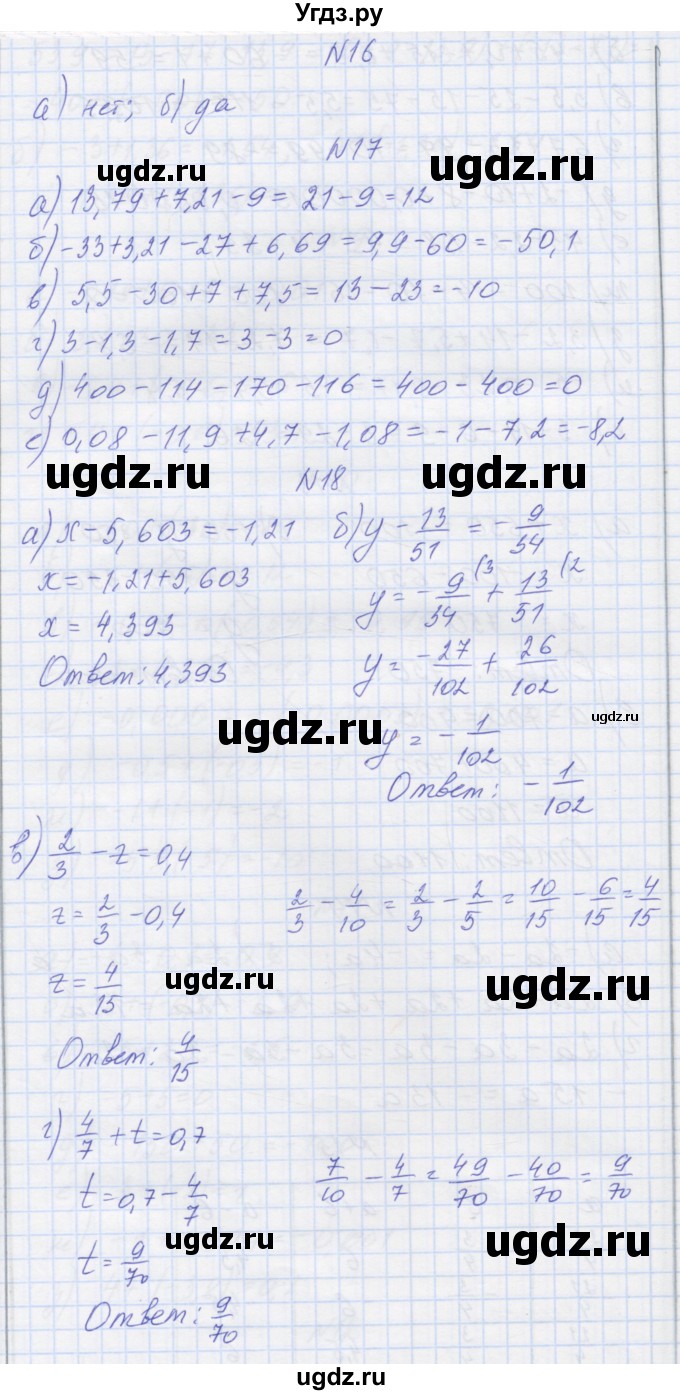 Угдз.ру
N16
а) нет; б) да
ugdz.ru
N17
ugdz.ru
а) 13,79 + 7,21 - 9 = 21 - 9 = 12
б) -33 + 3,21 - 27 + 6,69 = 9,9 - 60 = -50,1
в) 5,5 - 30 + 7 + 7,5 = 13 - 23 = -10
г) 3 - 1,3 - 1,7 = 3 - 3 = 0
д) 400 - 114 - 170 - 116 = 400 - 400 = 0
е) 0,08 - 11,9 + 4,7 - 1,08 = -1 - 7,2 = -8,2
ugdz.ru
N18
ugdz.ru
а) x - 5,603 = -1,21
x = -1,21 + 5,603
x = 4,393
Ответ: 4,393
б) y - 13/51 = -9/34
y = -9/34 (3 + 13/51 (2
y = -27/102 + 26/102
ugdz.ru
ugdz.ru
y = -1/102
Ответ: -1/102
в) 2/3 - z = 0,4
z = 2/3 - 0,4
2/3 - 4/10 = 2/3 - 2/5 = 10/15 - 6/15 = 4/15
z = 4/15
ugdz.ru
ugdz.ru
Ответ: 4/15
г) 4/7 + t = 0,7
t = 0,7 - 4/7
7/10 - 4/7 = 49/70 - 40/70 = 9/70
t = 9/70
ugdz.ru
ugdz.ru
Ответ: 9/70
ugdz.ru